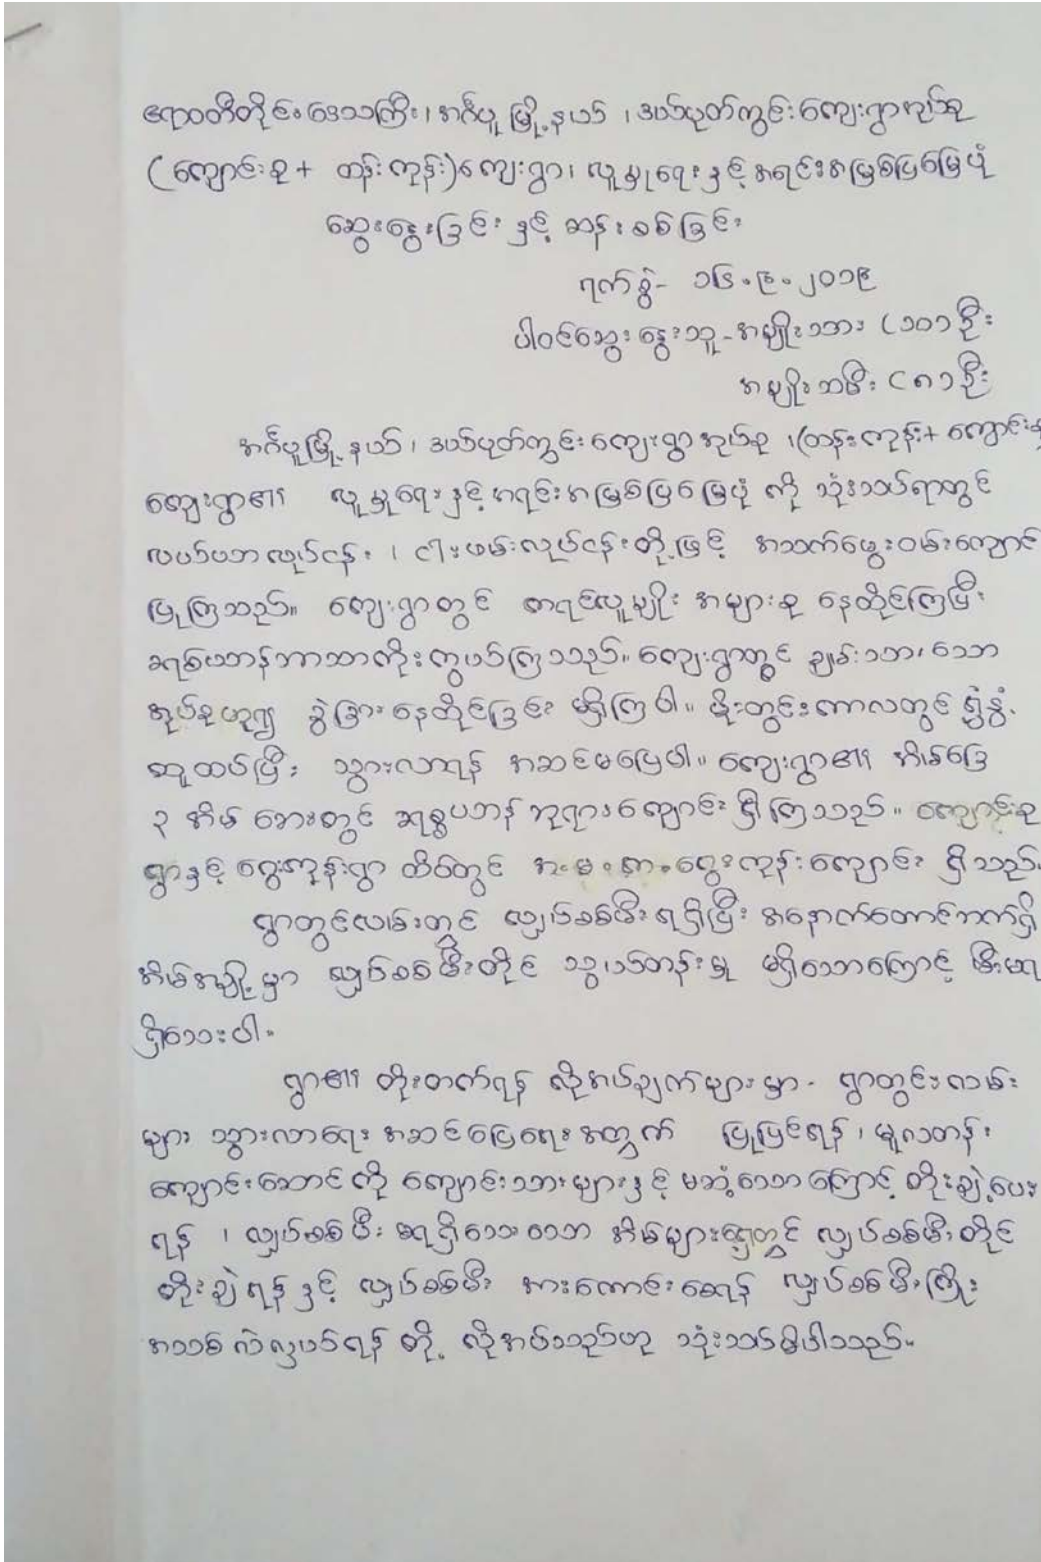 ဧရာဝတီတိုင်းဒေသကြီး၊ အင်္ဂပူမြို့နယ် ၊ ဒယ်ပုတ်ကွင်းကျေးရွာအုပ်စု
(ကျောင်းစု + တန်းကုန်း)ကျေးရွာ၊ လူမှုရေးနှင့်အရင်းအမြစ်ပြမြေပုံ
ဆွေးနွေးခြင်းနှင့် ဆန်းစစ်ခြင်း
ရက်စွဲ- ၁၆.၉.၂၀၁၉
ပါဝင်ဆွေးနွေးသူ-အမျိုးသား (၁၀)ဦး
အမျိုးသမီး (၈)ဦး
အင်္ဂပူမြို့နယ်၊ ဒယ်ပုတ်ကွင်းကျေးရွာအုပ်စု ၊(တန်းကုန်း+ ကျောင်းစု
ကျေးရွာ၏ လူမှုရေးနှင့်အရင်းအမြစ်ပြမြေပုံ ကို သုံးသပ်ရာတွင်
လယ်ယာလုပ်ငန်း ၊ ငါးဖမ်းလုပ်ငန်းတို့ဖြင့် အသက်မွေးဝမ်းကျောင်း
ပြုကြသည်။ ကျေးရွာတွင် ကရင်လူမျိုး အများစု နေထိုင်ကြပြီး
ခရစ်ယာန်ဘာသာကိုးကွယ်ကြသည်။ ကျေးရွာတွင် ချမ်းသာသော
အုပ်စုဟူ၍ ခွဲခြားနေထိုင်ခြင်း မရှိကြပါ။ မိုးတွင်းကာလတွင် ရွှံ့နွံ
ထူထပ်ပြီး သွားလာရန် အဆင်မပြေပါ။ ကျေးရွာ၏ အိမ်ခြေ
၃ အိမ် ဘေးတွင် ခရစ်ယာန်ဘုရားကျောင်း ရှိကြသည်။ ကျောင်းစု
ရွာနှင့် ငွေးကုန်းရွာ ထိပ်တွင် အ.မ.က.ငွေးကုန်းကျောင်း ရှိသည်။
ရွာတွင်လမ်းတွင် လျှပ်စစ်မီးရရှိပြီး အနောက်တောင်ဘက်ရှိ
အိမ်အချို့မှာ လျှပ်စစ်မီးတိုင် သွယ်တန်းမှု မရှိသောကြောင့် မီးမရ
ရှိသေးပါ။
ရွာ၏ တိုးတက်ရန် လိုအပ်ချက်များမှာ- ရွာတွင်းလမ်း
များ သွားလာရေး အဆင်ပြေရေးအတွက် ပြုပြင်ရန်၊ မူလတန်း
ကျောင်းဆောင်ကို ကျောင်းသားများနှင့် မဆံ့သောကြောင့် တိုးချဲ့ပေး
ရန် ၊ လျှပ်စစ်မီး မရရှိသေးသော အိမ်များရှေ့တွင် လျှပ်စစ်မီးတိုင်
တိုးချဲ့ရန်နှင့် လျှပ်စစ်မီး အားကောင်းစေရန် လျှပ်စစ်မီးကြိုး
အသစ်လဲလှယ်ရန် တို့ လိုအပ်သည်ဟု သုံးသပ်မိပါသည်။